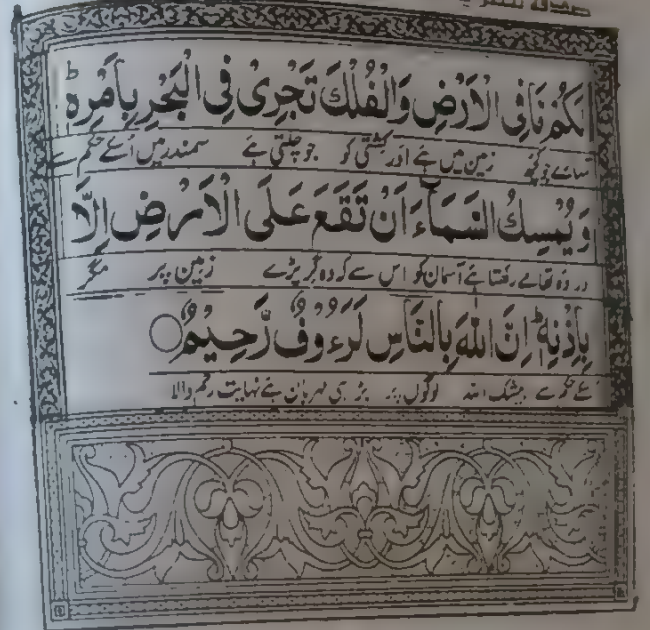 لَكُمْ مَّا فِی الْاَرْضِ وَالْفُلْكَ تَجْرِیْ فِی الْبَحْرِ بِاَمْرِهٖ ؕ
جو کچھ زمین میں ہے اور کشتی کو جو چلتی ہے سمندر میں اُسکے حکم سے
وَ یُمْسِكُ السَّمَآءَ اَنْ تَقَعَ عَلَی الْاَرْضِ اِلَّا
وہ تھامے رکھتا ہے آسمان کو اس سے کہ وہ گر پڑے زمین پر مگر
بِاِذْنِهٖ ؕ اِنَّ اللّٰهَ بِالنَّاسِ لَرَءُوْفٌ رَّحِیْمٌ ○
حکم سے بیشک اللہ لوگوں پر بڑا ہی مہربان ہے نہایت رحم والا